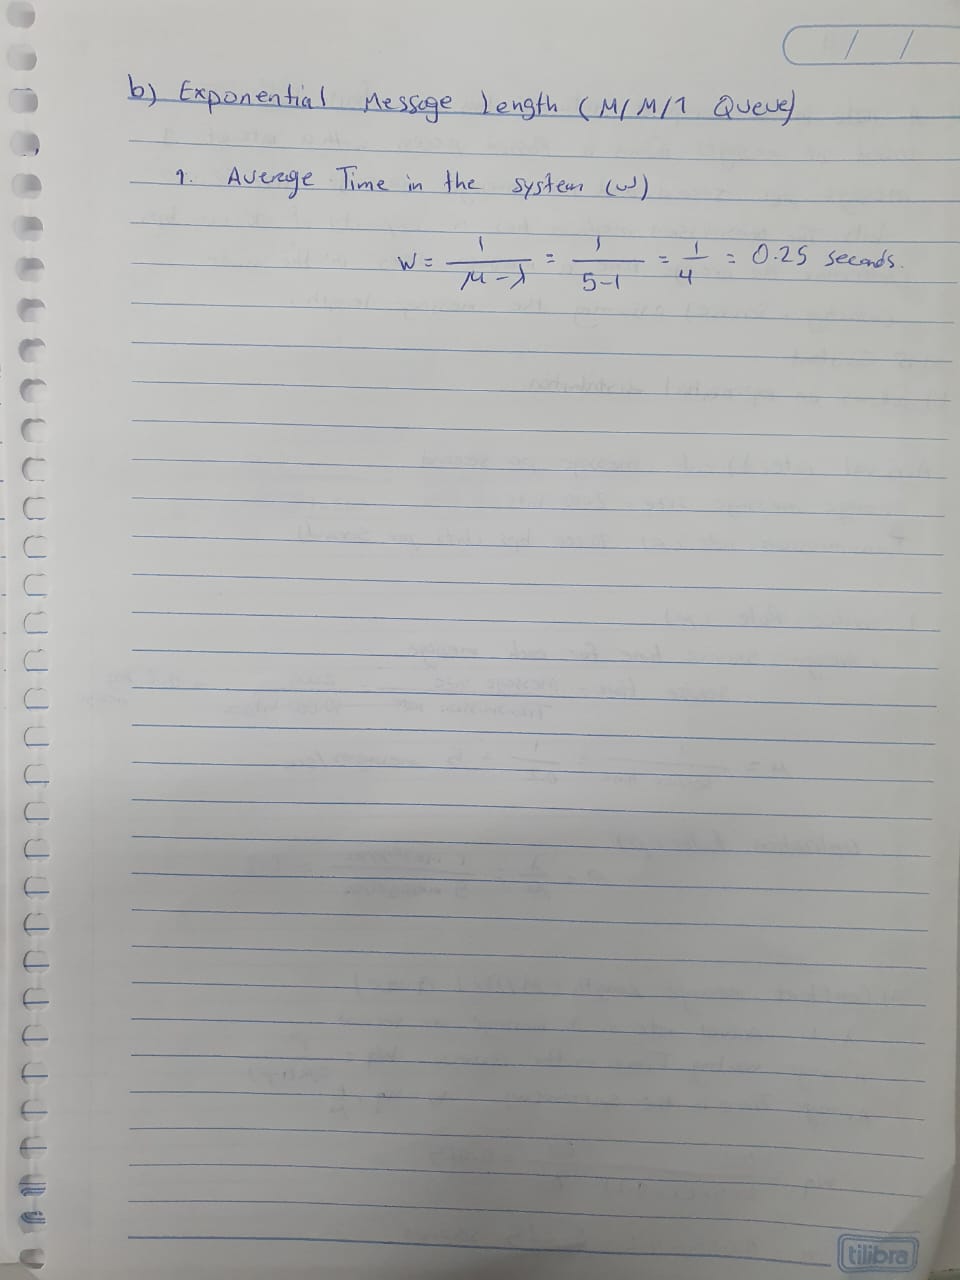 b) Exponential Message Length (M/M/1 Queue)
1. Average Time in the system (W)
W = 1/(μ-λ) = 1/(5-1) = 1/4 = 0.25 seconds.
tilibra